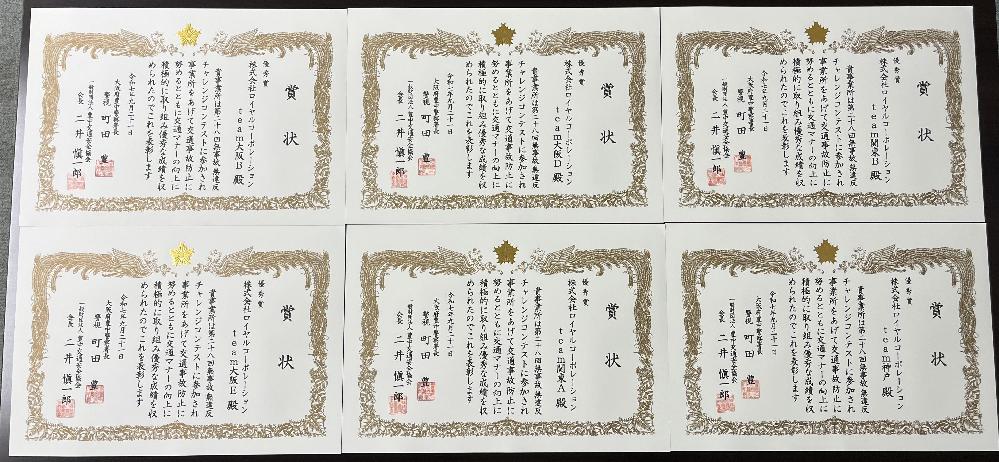 賞状
優秀賞
株式会社ロイヤルコーポレーション
team大阪B 殿
貴事業所は第二十八回無事故無違反
チャレンジコンテストに参加され
事業所をあげて交通事故防止に
努めるとともに交通マナーの向上に
積極的に取り組み優秀な成績を収
められたのでこれを表彰します
令和七年九月二十一日
大阪府豊中警察署長
警視 町田 豊
一般財団法人 豊中交通安全協会
会長 二井 愼一郎
賞状
優秀賞
株式会社ロイヤルコーポレーション
team大阪D 殿
貴事業所は第二十八回無事故無違反
チャレンジコンテストに参加され
事業所をあげて交通事故防止に
努めるとともに交通マナーの向上に
積極的に取り組み優秀な成績を収
められたのでこれを表彰します
令和七年九月二十一日
大阪府豊中警察署長
警視 町田 豊
一般財団法人 豊中交通安全協会
会長 二井 愼一郎
賞状
優秀賞
株式会社ロイヤルコーポレーション
team関東B 殿
貴事業所は第二十八回無事故無違反
チャレンジコンテストに参加され
事業所をあげて交通事故防止に
努めるとともに交通マナーの向上に
積極的に取り組み優秀な成績を収
められたのでこれを表彰します
令和七年九月二十一日
大阪府豊中警察署長
警視 町田 豊
一般財団法人 豊中交通安全協会
会長 二井 愼一郎
賞状
優秀賞
株式会社ロイヤルコーポレーション
team大阪E 殿
貴事業所は第二十八回無事故無違反
チャレンジコンテストに参加され
事業所をあげて交通事故防止に
努めるとともに交通マナーの向上に
積極的に取り組み優秀な成績を収
められたのでこれを表彰します
令和七年九月二十一日
大阪府豊中警察署長
警視 町田 豊
一般財団法人 豊中交通安全協会
会長 二井 愼一郎
賞状
優秀賞
株式会社ロイヤルコーポレーション
team関東A 殿
貴事業所は第二十八回無事故無違反
チャレンジコンテストに参加され
事業所をあげて交通事故防止に
努めるとともに交通マナーの向上に
積極的に取り組み優秀な成績を収
められたのでこれを表彰します
令和七年九月二十一日
大阪府豊中警察署長
警視 町田 豊
一般財団法人 豊中交通安全協会
会長 二井 愼一郎
賞状
優秀賞
株式会社ロイヤルコーポレーション
team神戸 殿
貴事業所は第二十八回無事故無違反
チャレンジコンテストに参加され
事業所をあげて交通事故防止に
努めるとともに交通マナーの向上に
積極的に取り組み優秀な成績を収
められたのでこれを表彰します
令和七年九月二十一日
大阪府豊中警察署長
警視 町田 豊
一般財団法人 豊中交通安全協会
会長 二井 愼一郎